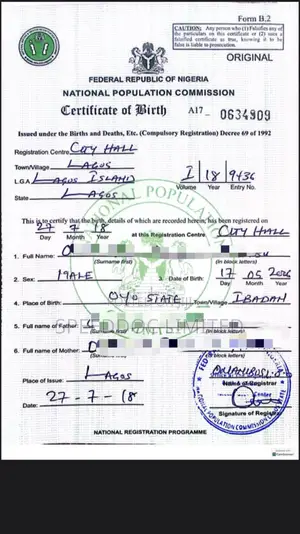 Form B.2
CAUTION: Any person who (1) Falsifies any of the particulars on this certificate or (2) uses a falsified certificate as true, knowing it to be false is liable to prosecution.
ORIGINAL
FEDERAL REPUBLIC OF NIGERIA
NATIONAL POPULATION COMMISSION
Certificate of Birth A17 0634909
Issued under the Births and Deaths, Etc. (Compulsory Registration) Decree 69 of 1992
Registration Centre CITY HALL
Town/Village LAGOS
L.G.A LAGOS ISLAND I 18 9436
Volume Year Entry No.
State LAGOS
This is to certify that the birth, details of which are recorded herein, has been registered on
27 7 18 at this Registration Centre CITY HALL
Day Month Year
1. Full Name:
(Surname first) (In block letters)
2. Sex: MALE 3. Date of Birth: 17 05
Day Month Year
4. Place of Birth: OYO STATE Town/Village IBADAN
SPEEDDOC LIMITED
5. Full name of Father:
(In block letters)
6. Full name of Mother:
(In block letters)
Place of Issue: LAGOS
Name of Registrar
Date: 27-7-18
Signature of Registrar
NATIONAL POPULATION COMMISSION
NATIONAL REGISTRATION PROGRAMME